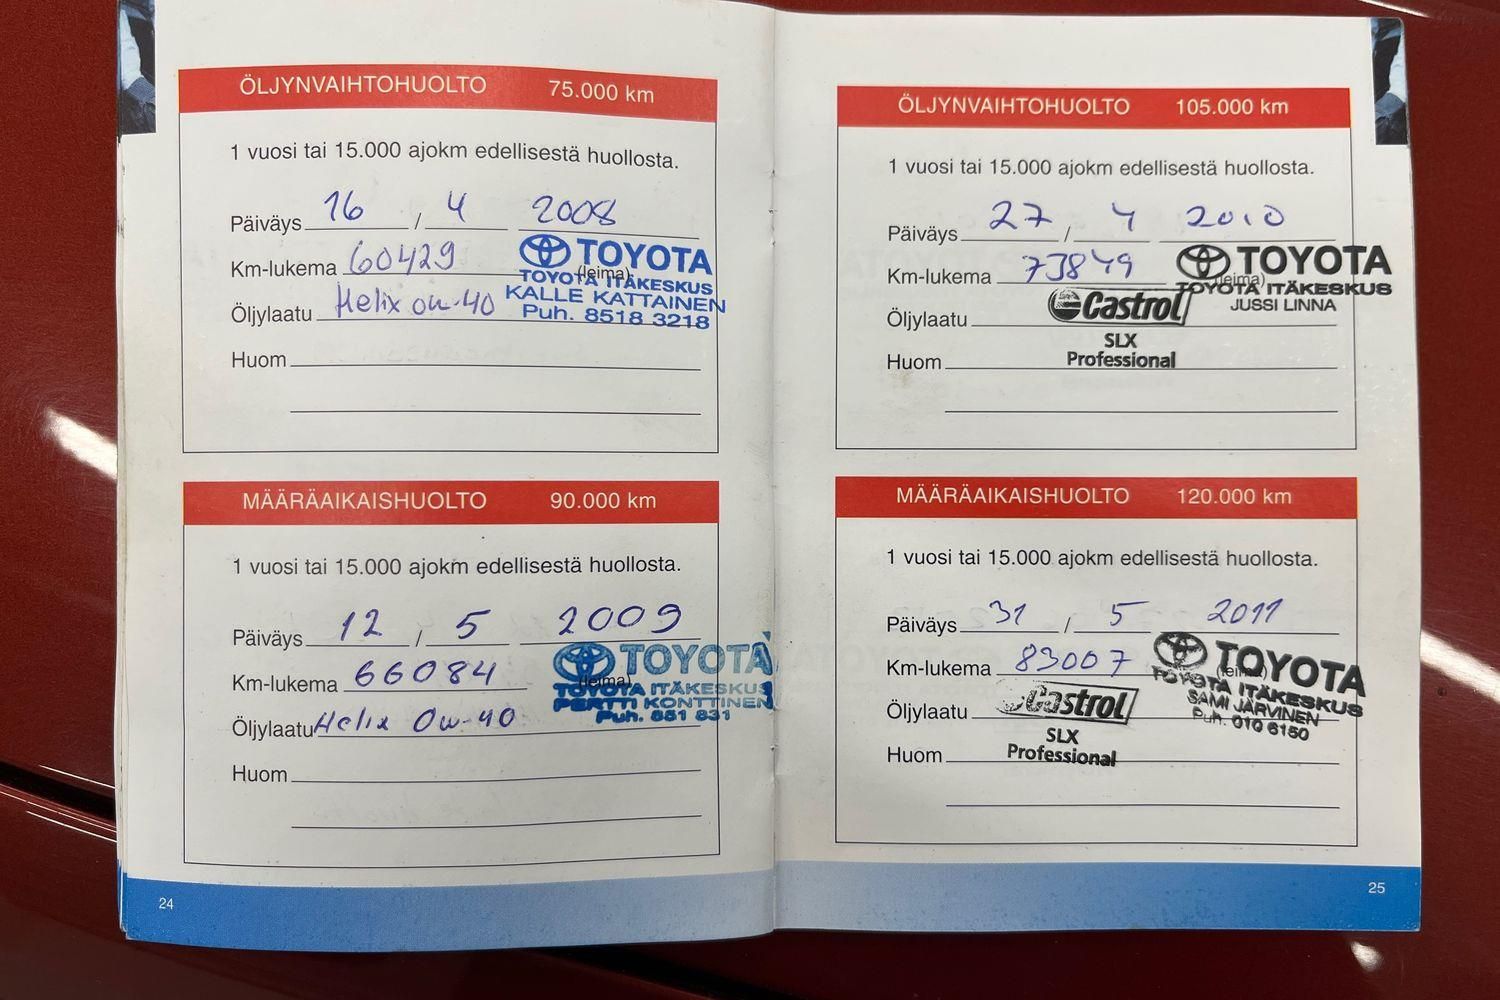 ÖLJYNVAIHTOHUOLTO 75.000 km
1 vuosi tai 15.000 ajokm edellisestä huollosta.
Päiväys 16 / 4 2008
Km-lukema 60429 (leima)
Öljylaatu Helix 0w-40
Huom
TOYOTA
TOYOTA ITÄKESKUS
KALLE KATTAINEN
Puh. 8518 3218
MÄÄRÄAIKAISHUOLTO 90.000 km
1 vuosi tai 15.000 ajokm edellisestä huollosta.
Päiväys 12 / 5 2009
Km-lukema 66084 (leima)
Öljylaatu Helix 0w-40
Huom
TOYOTA
TOYOTA ITÄKESKUS
PERTTI KONTTINEN
Puh. 851 831
24
ÖLJYNVAIHTOHUOLTO 105.000 km
1 vuosi tai 15.000 ajokm edellisestä huollosta.
Päiväys 27 / 4 2010
Km-lukema 73849 (leima)
Öljylaatu Castrol
SLX
Professional
Huom
TOYOTA
TOYOTA ITÄKESKUS
JUSSI LINNA
MÄÄRÄAIKAISHUOLTO 120.000 km
1 vuosi tai 15.000 ajokm edellisestä huollosta.
Päiväys 31 / 5 2011
Km-lukema 83007 (leima)
Öljylaatu Castrol
SLX
Professional
Huom
TOYOTA
TOYOTA ITÄKESKUS
SAMI JÄRVINEN
Puh. 010 6150
25